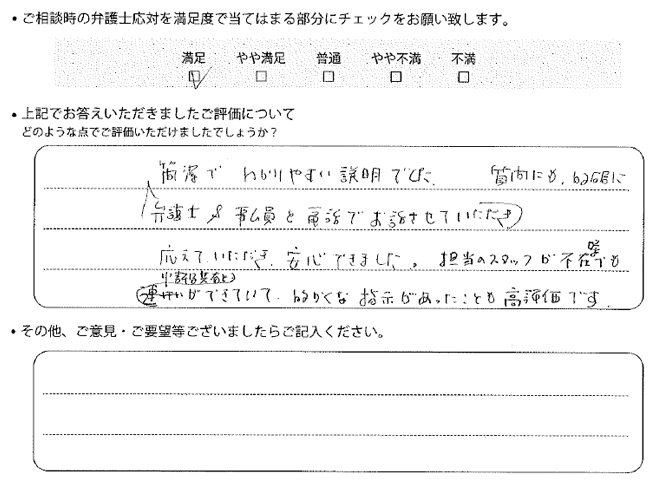 • ご相談時の弁護士応対を満足度で当てはまる部分にチェックをお願い致します。
満足 やや満足 普通 やや不満 不満
• 上記でお答えいただきましたご評価について
どのような点でご評価いただけましたでしょうか？
簡潔で わかりやすい説明でした 質問にも、的確に
弁護士 事ム員と電話でお話させていただき
応えていただき、安心できました。担当のスタッフが不在時でも
ができていて、明かくな指示があったことも高評価です.
• その他、ご意見・ご要望等ございましたらご記入ください。